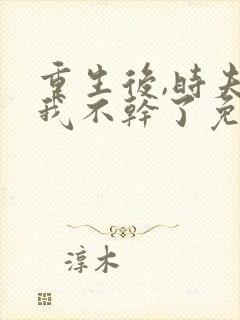 重生後,時夫
我不幹了免
淳木